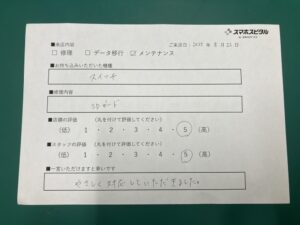 スマホスピタル
■来店内容 ご来店日: 2025 年 8月 21日
□ 修理 □ データ移行 ☑ メンテナンス
■お持ち込みいただいた機種
スイッチ
■修理内容
SDカード
■店舗の評価 (丸を付けて評価してください)
(低) 1 ・ 2 ・ 3 ・ 4 ・ 5 (高)
■スタッフの評価 (丸を付けて評価してください)
(低) 1 ・ 2 ・ 3 ・ 4 ・ 5 (高)
■一言いただけますと幸いです
やさしく対応していただきました。